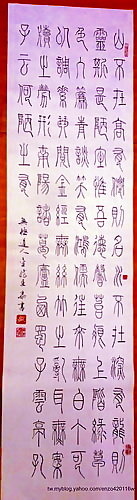 山不在高有仙則名水不在深有龍則
靈斯是陋室惟吾德馨苔痕上階綠草
色入簾青談笑有鴻儒往來無白丁可
以調素琴閱金經無絲竹之亂耳無案
牘之勞形南陽諸葛廬西蜀子雲亭孔
子云何陋之有
tw.myblog.yahoo.com/enzo420116w